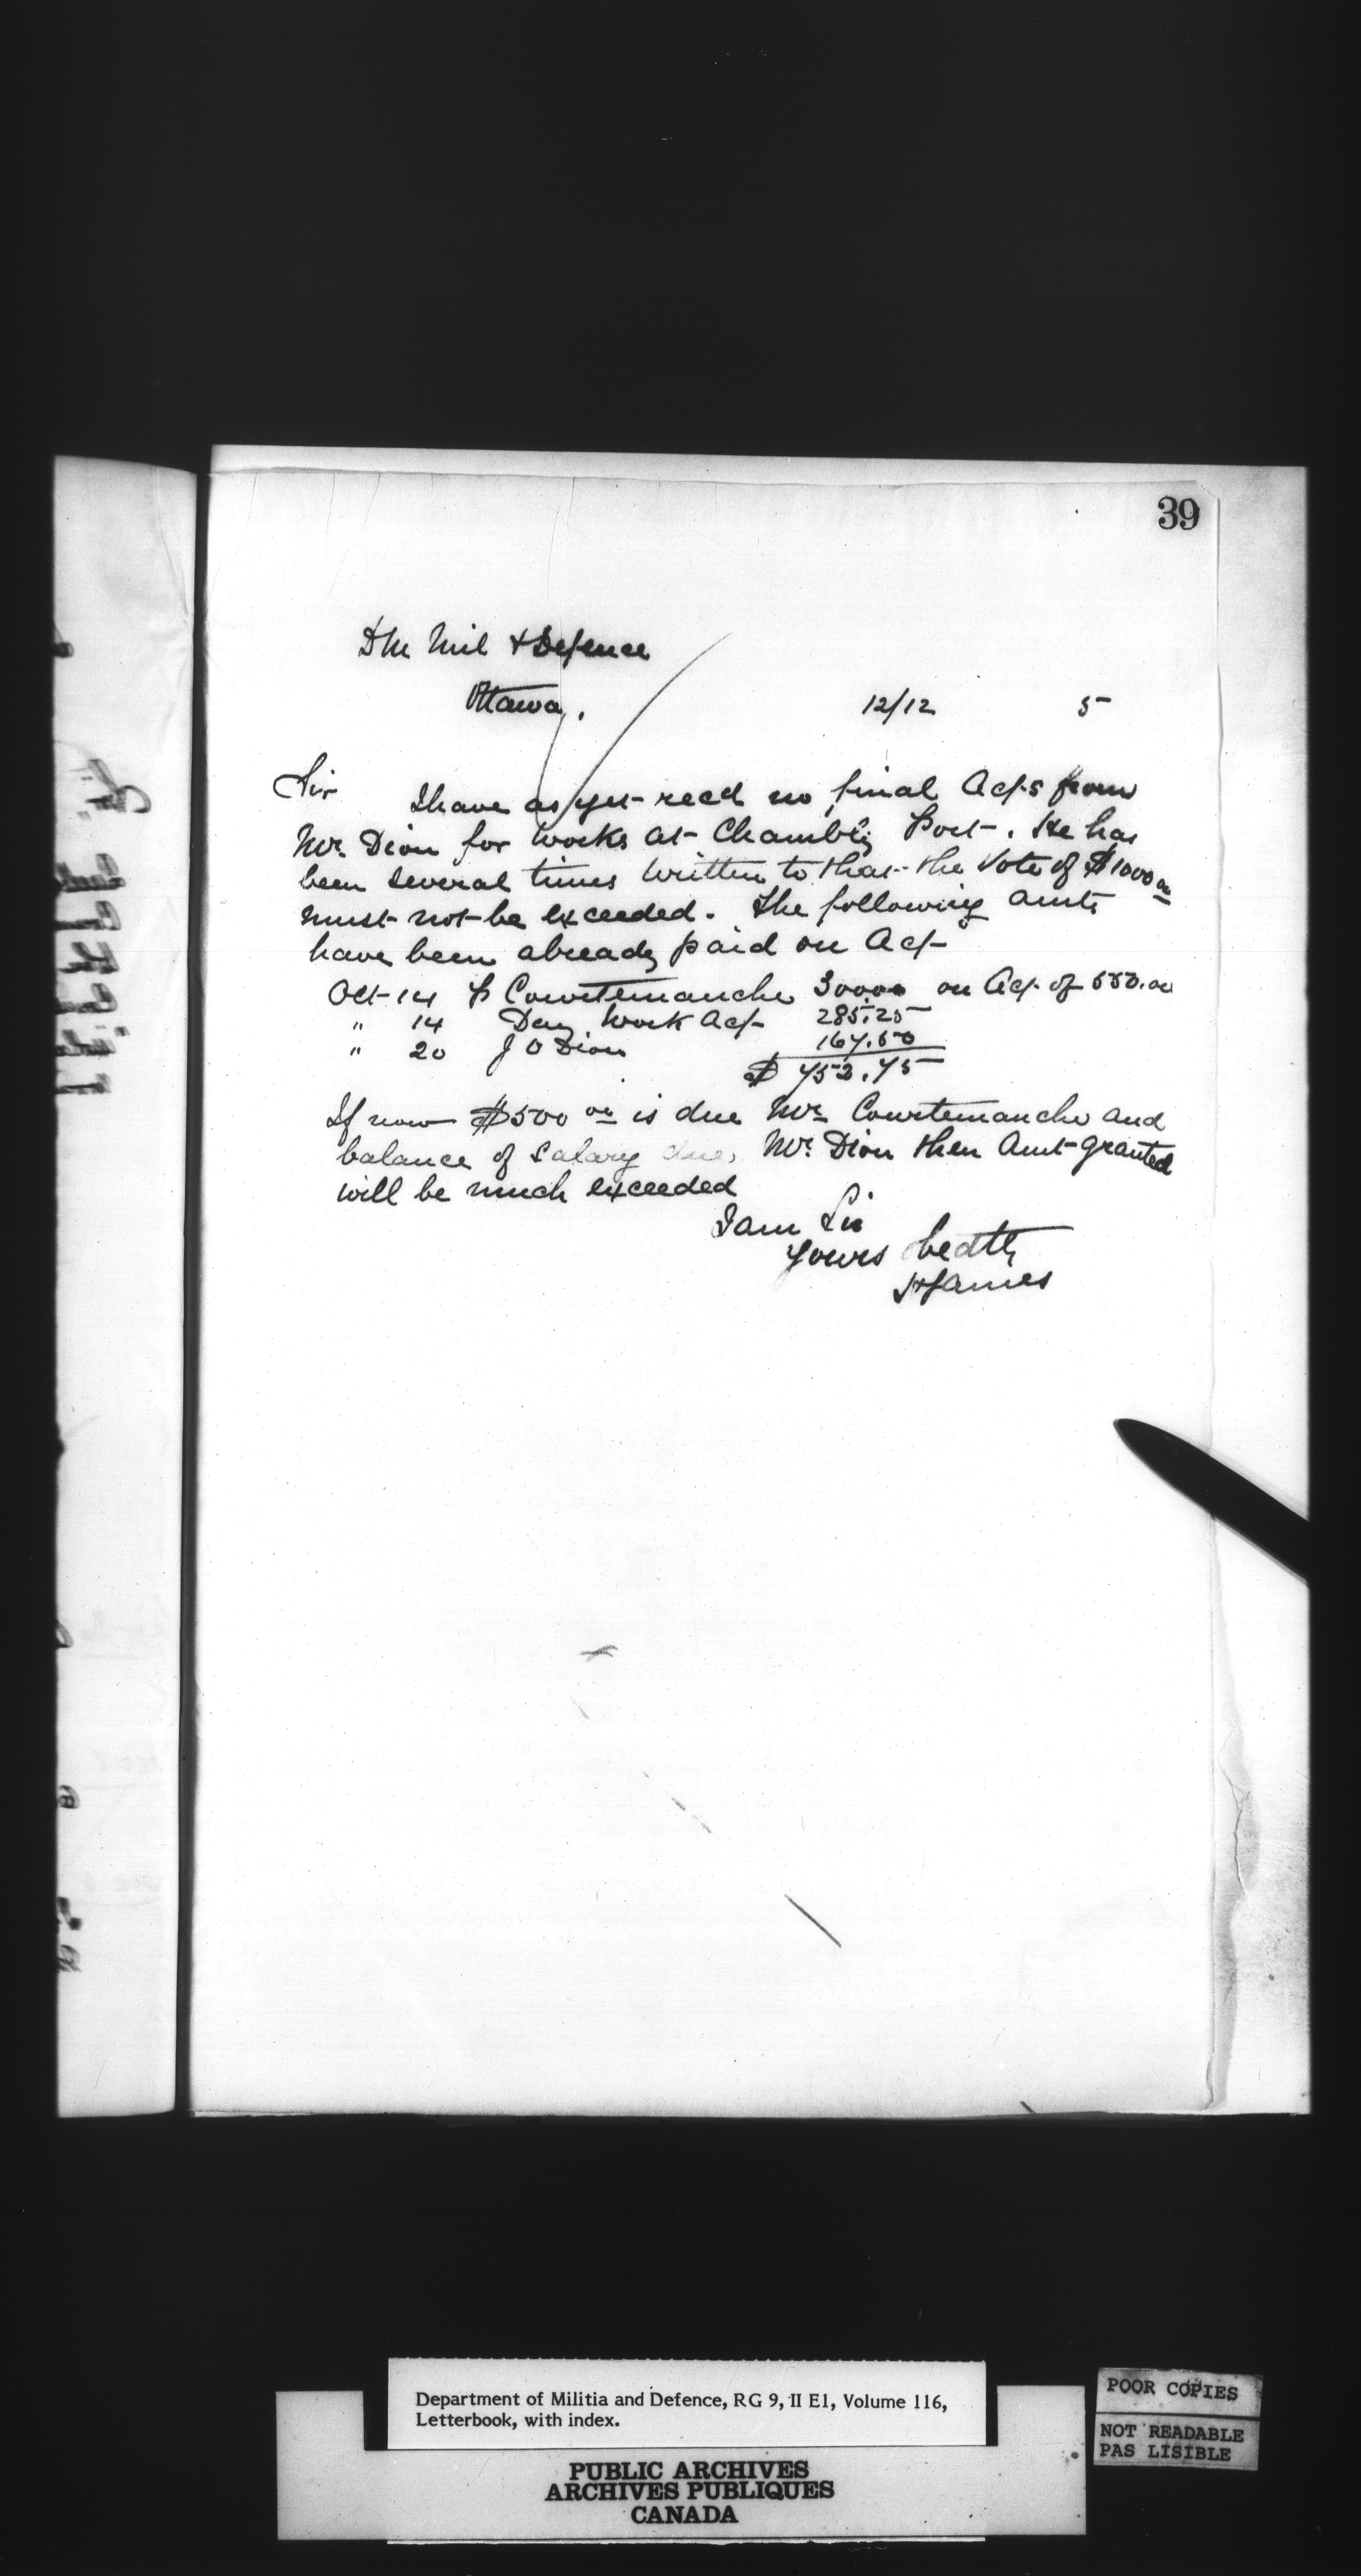 39
DM Mil & Defence
Ottawa.
12/12 5
Sir I have as yet recd no final Acts from
Mr. Dion for works at Chambly Fort. He has
been several times written to that the Vote of $1000 00
must not be exceeded. The following amts
have been already paid on Act
Oct 14 P Courtemanche 300.00 on Act of 550.00
" 14 Day Work Act 285.25
" 20 J O Dion 167.50
$ 752.75
If now $500 00 is due Mr Courtemanche and
balance of Salary due, Mr. Dion then Amt granted
will be much exceeded
I am Sir
Yours Obedtly
H James
Department of Militia and Defence, RG 9, II E1, Volume 116,
Letterbook, with index.
PUBLIC ARCHIVES
ARCHIVES PUBLIQUES
CANADA
POOR COPIES
NOT READABLE
PAS LISIBLE